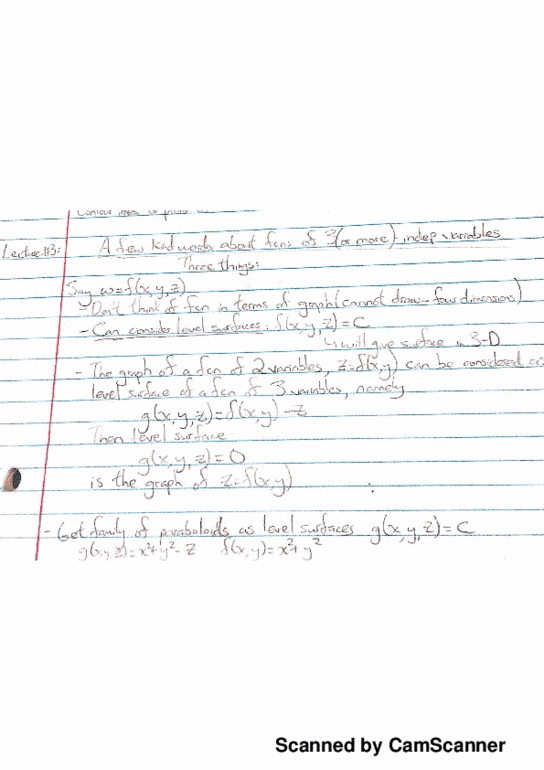 Lecture #3: A few kind words about fcns of 3(or more) indep variables
Three things:
Say w=f(x,y,z)
- Don't think of fcn in terms of graph (cannot draw - four dimensions)
- Can consider level surfaces: f(x,y,z)=C
↳ will give surface in 3-D
- The graph of a fcn of 2 variables, z=f(x,y) can be considered as
level surface of a fcn of 3 variables, namely
g(x,y,z)=f(x,y)-z
Then level surface
g(x,y,z)=0
is the graph of z=f(x,y)
- Get family of paraboloids as level surfaces g(x,y,z)=C
g(x,y,z)=x²+y²-z f(x,y)=x²+y²
Scanned by CamScanner